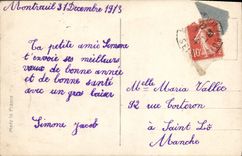 Montreuil 31 Decembre 1913
Ta petite amie Simone
t'envoie ses meilleurs
vœux de bonne année
et de bonne santé
avec un gros baiser
Simone Jacob
Melle Maria Vallée
92 rue Torteron
à Saint Lô
Manche
Made in France
10